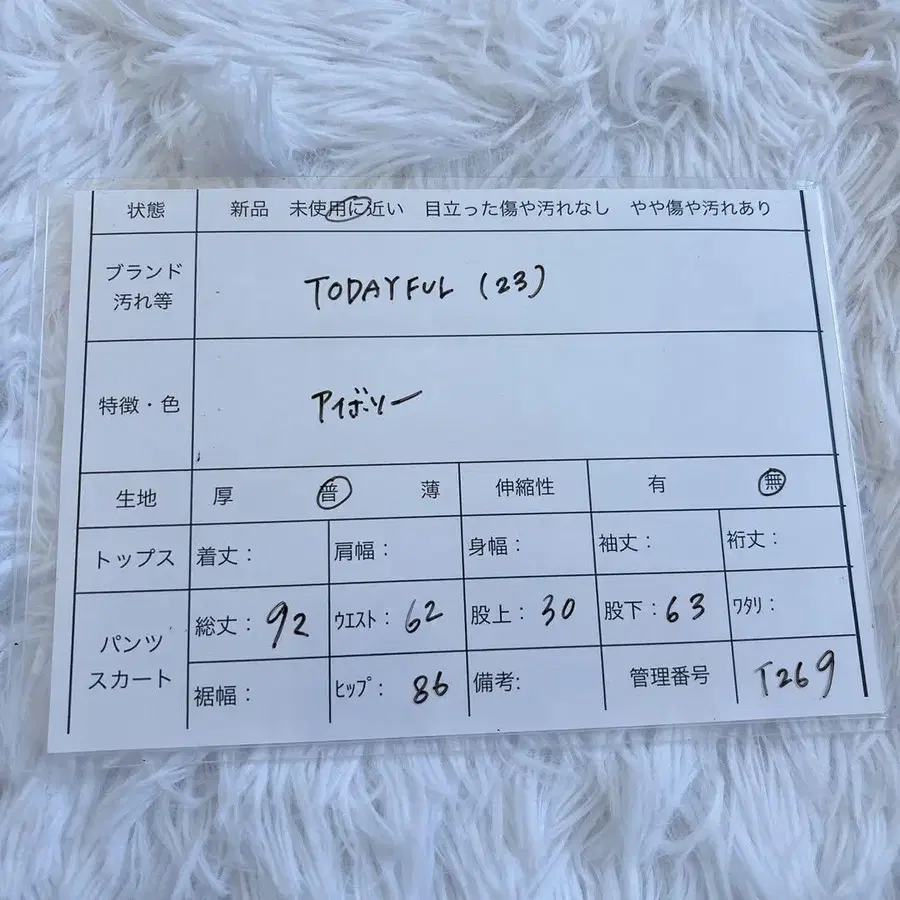 状態 新品 未使用に近い 目立った傷や汚れなし やや傷や汚れあり
ブランド
汚れ等
TODAYFUL (23)
特徴・色 アイボリー
生地 厚 普 薄 伸縮性 有 無
トップス 着丈： 肩幅： 身幅： 袖丈： 裄丈：
パンツ
スカート
総丈：92 ｳｴｽﾄ：62 股上：30 股下：63 ﾜﾀﾘ：
裾幅： ﾋｯﾌﾟ：86 備考: 管理番号 T269